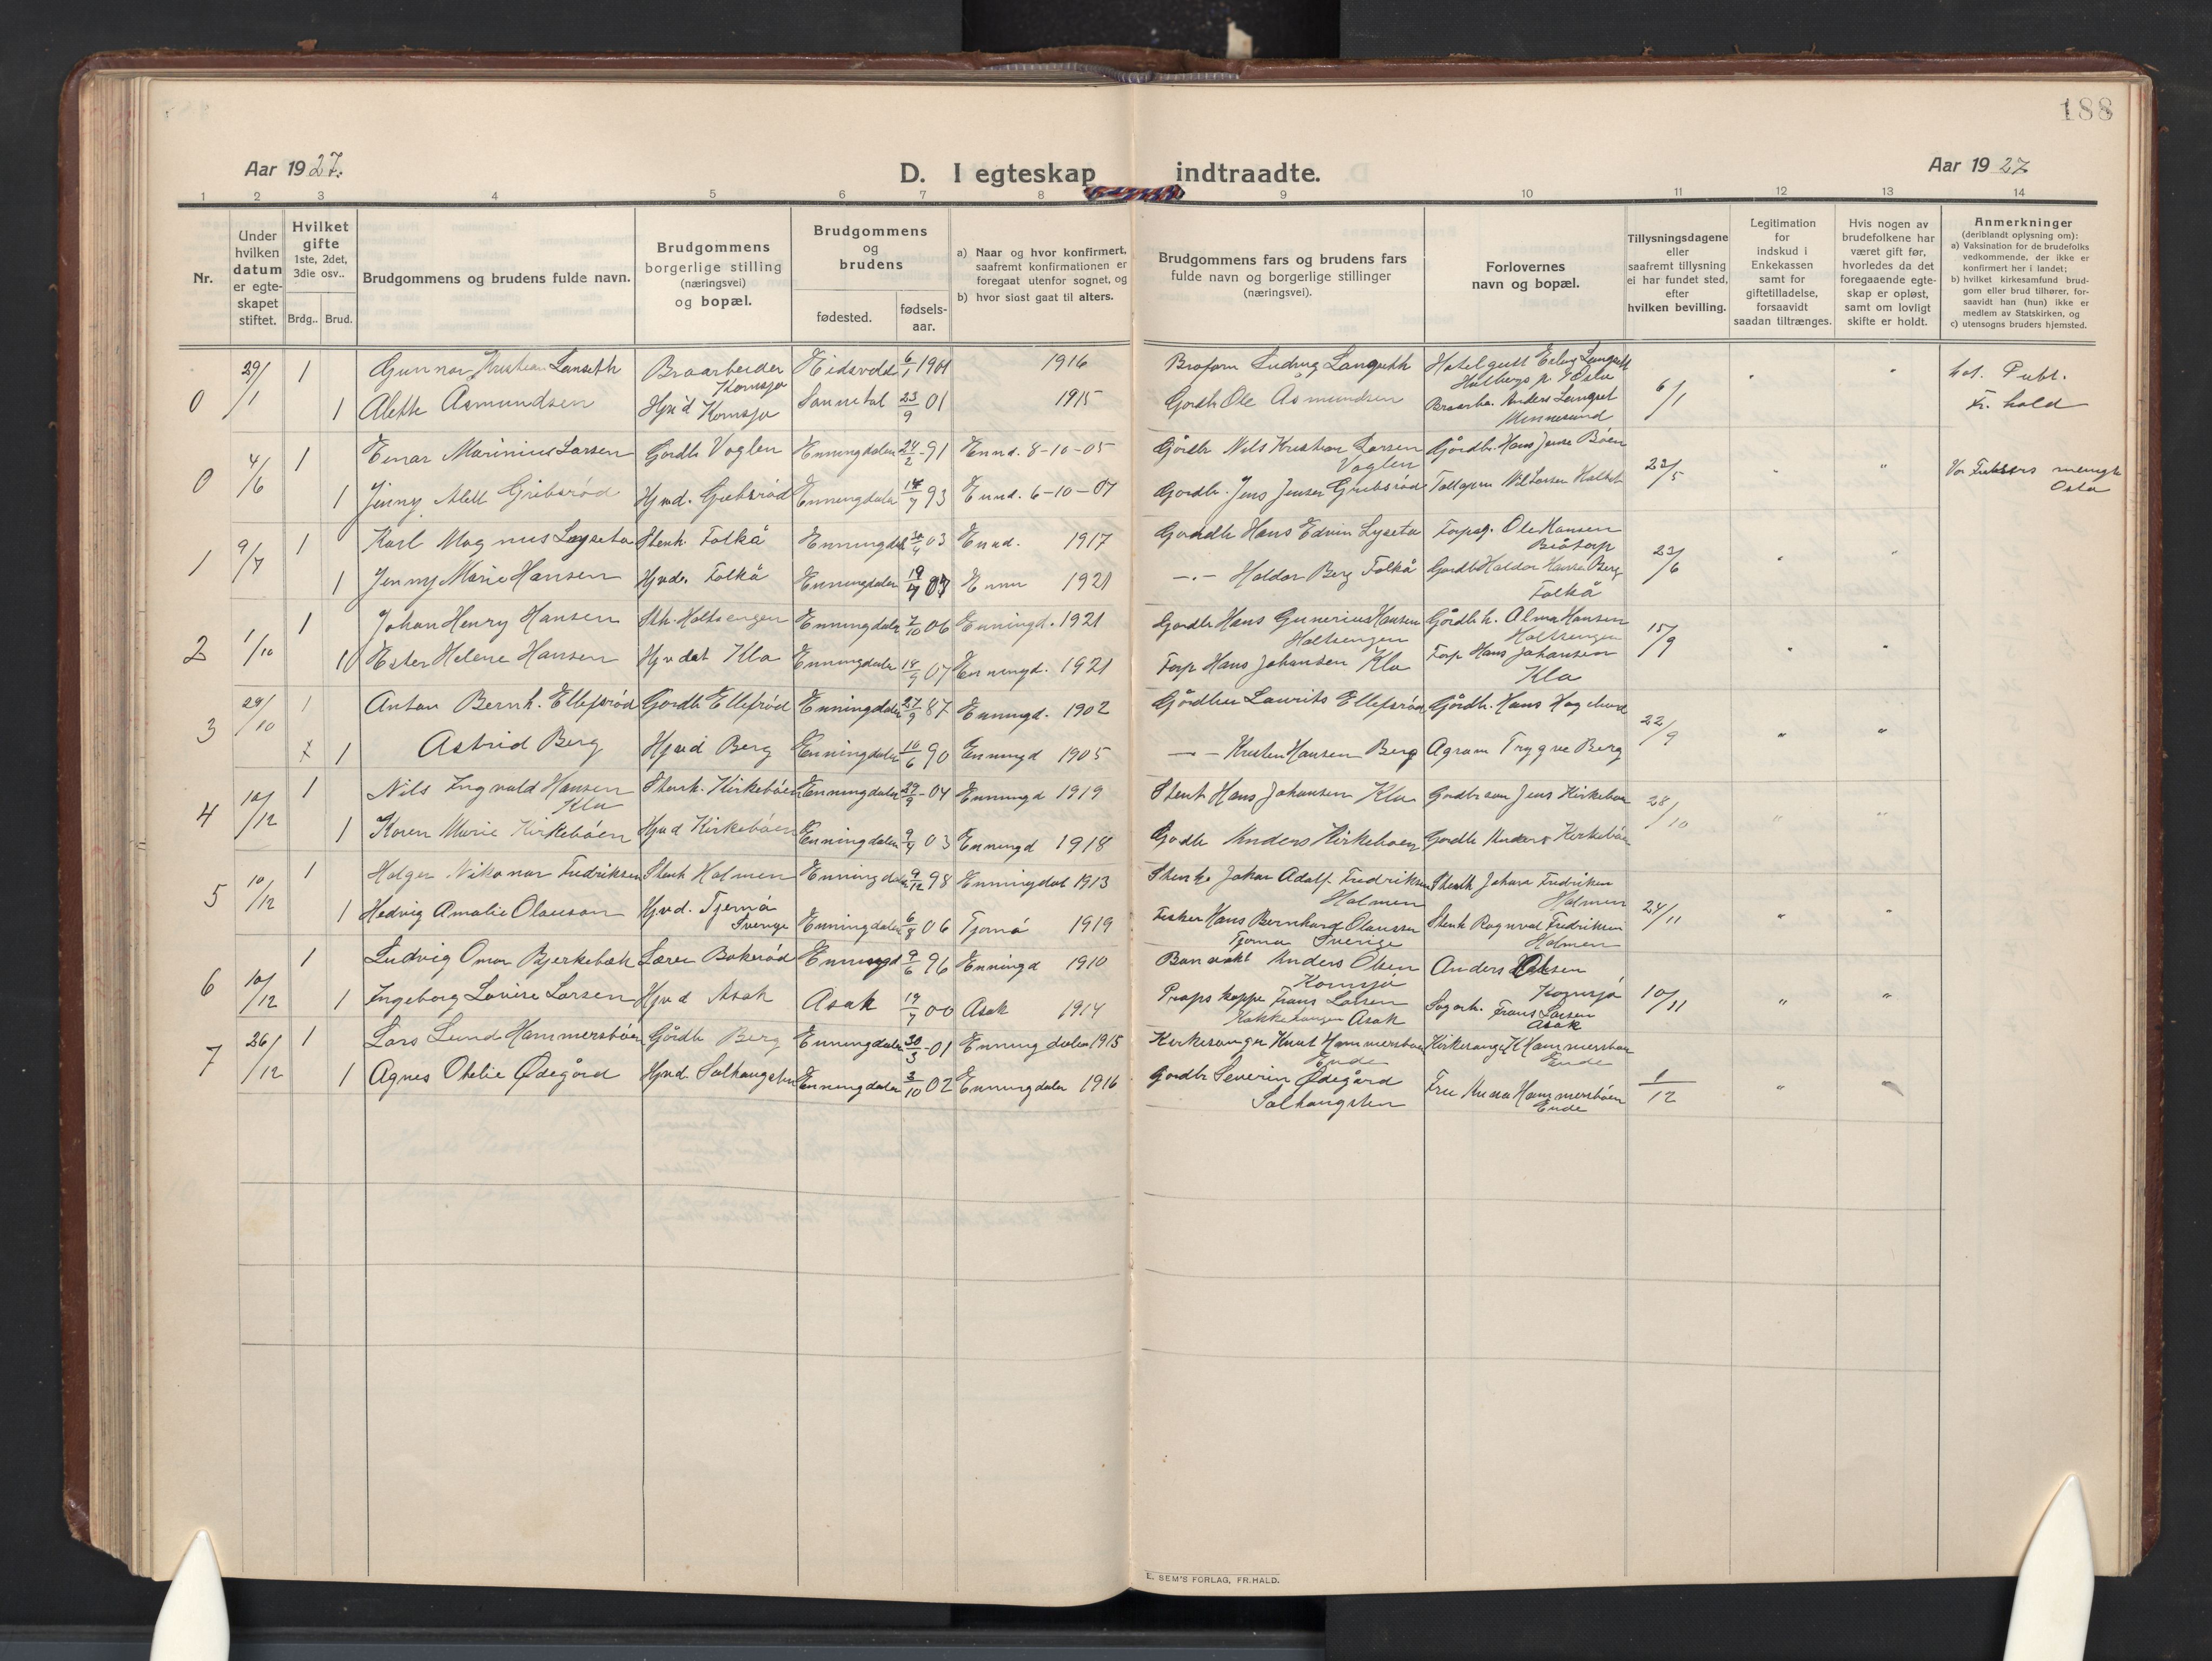 188
Aar 1927.
D. I egteskap indtraadte.
Aar 1927
1 2 3 4 5 6 7 8 9 10 11 12 13 14
Nr.
Under hvilken datum er egte-skapet stiftet.
Hvilket gifte 1ste, 2det, 3die osv..
Brdg.. Brud.
Brudgommens og brudens fulde navn.
Brudgommens borgerlige stilling (næringsvei) og bopæl.
Brudgommens og brudens
fødested.
fødsels-aar.
a) Naar og hvor konfirmert, saafremt konfirmationen er foregaat utenfor sognet, og
b) hvor sidst gaat til alters.
Brudgommens fars og brudens fars fulde navn og borgerlige stillinger (næringsvei).
Forlovernes navn og bopæl.
Tillysningsdagene eller saafremt tillysning ei har fundet sted, efter hvilken bevilling.
Legitimation for indskud i Enkekassen samt for giftetilladelse, forsaavidt saadan tiltrænges.
Hvis nogen av brudefolkene har været gift før, hvorledes da det foregaaende egte-skap er opløst, samt om lovligt skifte er holdt.
Anmerkninger
(deriblandt oplysning om):
a) Vaksination for de brudefolks vedkommende, der ikke er konfirmert her i landet;
b) hvilket kirkesamfund brud-gom eller brud tilhører, for-saavidt han (hun) ikke er medlem av Statskirken, og
c) utensogns bruders hjemsted.
0 29/1 1 Gunnar Kristian Lanseth Braarbeider Kornsjø Eidsvold 6/1 1901 1916 Ludvig Langseth Erling Langseth Holbergs p. 9 Oslo 6/1
1 Alette Asmundsen Hjvd Kornsjø Sannidal 23/9 01 1915 Gårdb Ole Asmundsen Anders Langset Minnesund Fr. hald
0 4/6 1 Einar Marinius Larsen Gårdb Voglen Enningdalen 24/2 91 Ennd. 8-10-05 Gårdbr Nils Kristian Larsen Voglen Gårdbr. Hans Jense Bøen 22/5 Vor Frelsers menigh Oslo
1 Jenny Alett Gribsrød Hjvd. Gribsrød Enningdalen 14/7 93 Ennd. 6-10-07 Gårdbr. Jens Jensen Gribsrød
1 9/7 1 Karl Magnus Lyseto Stenh. Folkå Enningdal 03 Ennd. 1917 Gårdb Hans Edvin Lyseto Ole Hansen 23/6
1 Jenny Marie Hansen Hjvd. Folkå Enningdalen 19/4 07 Enn 1921 -.- Haldor Berg Folkå Gårdb Haldor Hansen Berg Folkå
2 1/10 1 Johan Henry Hansen Sth. Holtsengen Enningdalen 7/10 06 Enningd. 1921 Gårdb Hans Gunerius Hansen Holtsengen Gårdbh. Alma Hansen Holtsengen 15/9
1 Ester Helene Hansen Hjvdat Kla Enningdalen 18/9 07 Enningd. 1921 Forp Hans Johansen Kla Forp Hans Johansen Kla
3 29/10 1 Anton Bernh. Ellefsrød Gårdb Ellefsrød Enningdalen 27/9 87 Enningd. 1902 Laurits Ellefsrød Gårdb. Hans 22/9
1 Astrid Berg Hjvd Berg Enningdalen 10/6 90 Enningd 1905 -- Kristen Hansen Berg Agram Trygve Berg
4 10/12 1 Nils Ingvald Hansen Kla Stenh. Kirkebøen Enningdalen 29/9 04 Enningd 1919 Stenh Hans Johansen Kla Gårdbrsøn Jens Kirkebøen 28/10
1 Karen Marie Kirkebøen Hjvd Kirkebøen Enningdalen 9/4 03 Enningd 1918 Gårdb Anders Kirkebøen Gårdb Anders Kirkebøen
5 10/12 1 Holger Nikanor Fredriksen Stenh Holmen Enningdalen 9/12 98 Enningdal 1913 Stenh Johan Adolf Fredriksen Holmen Stenh Johan Fredriksen Holmen 24/11
1 Hedvig Amalie Olausson Hjvd. Tjernø Sverige Enningdalen 6/8 06 Tjernø 1919 Fisker Hans Bernhard Olausson Tjernø Sverige Stenh Ragnvald Fredriksen Holmen
6 10/12 1 Ludvig Omar Bjerkebæk Lærer Bokerød Enningd 9/6 96 Enningd 1910 Banevakt Anders Olsen Kornsjø Anders Olsen Kornsjø 10/11
1 Ingeborg Lovise Larsen Hjvd Asak Asak 19/7 00 Asak 1914 Frans Larsen Asak Frans Larsen Asak
7 26/12 1 Lars Lund Hammersbøen Gårdb Berg Enningdalen 30/3 01 Enningdalen 1915 Kirkesanger Knut Hammersbøen Ende Kirkesanger K Hammersbøen Ende 1/12
1 Agnes Otelie Ødegård Hjvd. Solhaugsten Enningdalen 3/10 02 Enningdalen 1916 Gårdb Severin Ødegård Solhaugsten Fru Anna Hammersbøen Ende
E. SEM'S FORLAG, FR.HALD.